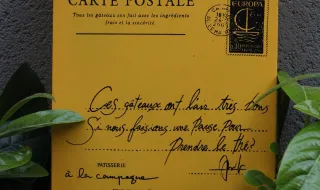 CARTE POSTALE
Tous les gâteaux son fait avec les ingrédients
frais et la sincérité.
EUROPA
Ces gâteaux ont l'air très bons
Si nous faisions une Pause Pour
Prendre le thé?
PATISSERIE
à la campagne